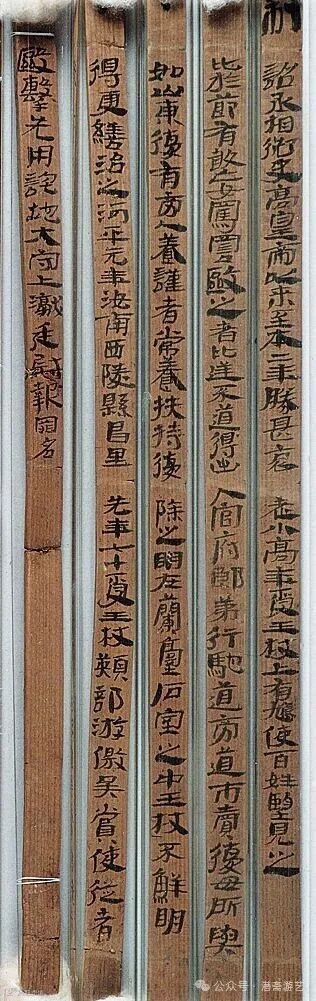 制 詔丞相御史高皇帝以來至本二年勝甚哀老小高年受王杖上有鳩使百姓望見之
比於節有敢妄罵詈毆之者比逆不道得出入官府郎弟行馳道旁道市賣復毋所與
如山東復有旁人養謹者常養扶持復除之明在蘭臺石室之中王杖不鮮明
得更繕治之河平元年汝南西陵縣昌里先年七十受王杖熲部游徼吳賞使從者
毆擊先用詑地大守上讞廷尉報罪名
公众号·港斋游艺